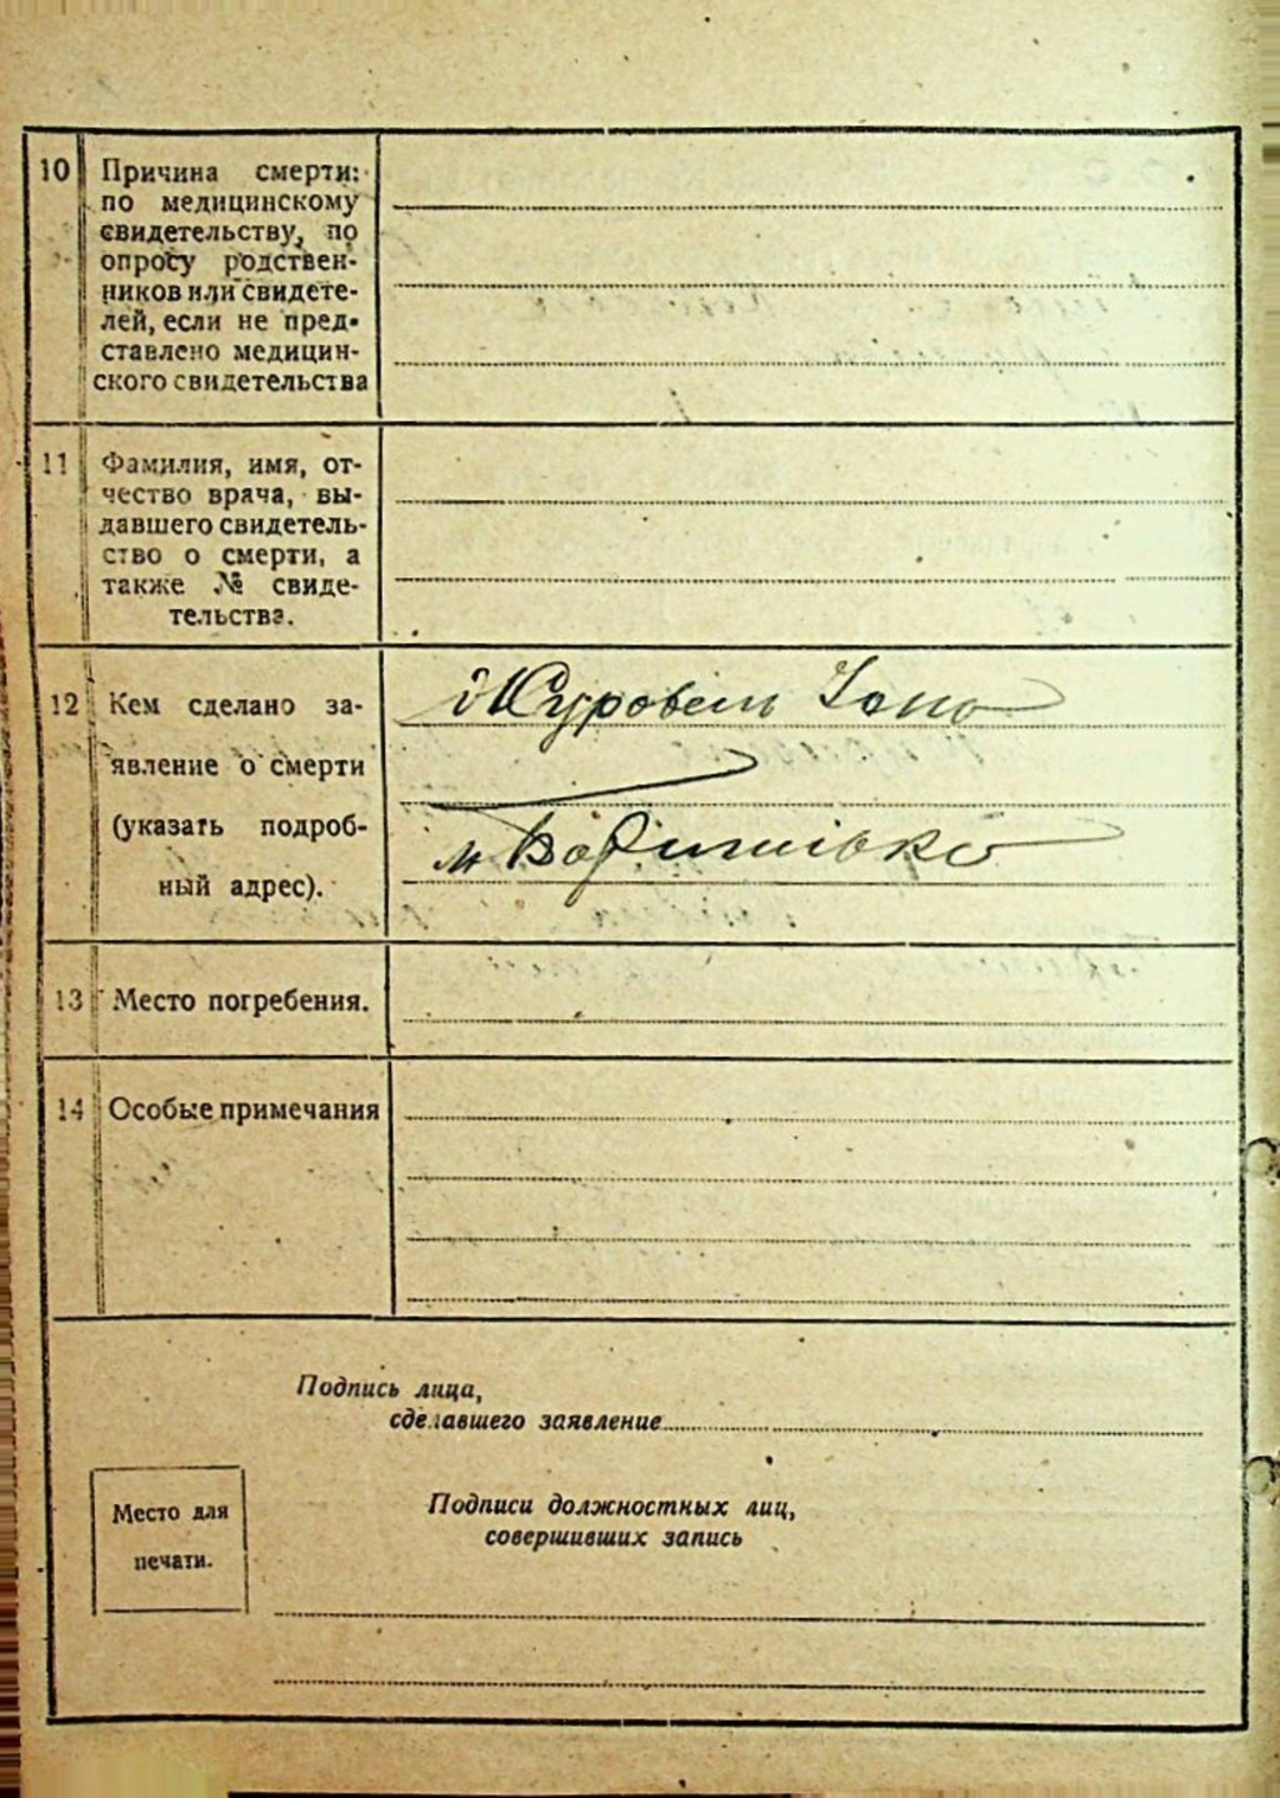 10 Причина смерти:
по медицинскому
свидетельству, по
опросу родствен-
ников или свидете-
лей, если не пред-
ставлено медицин-
ского свидетельства
11 Фамилия, имя, от-
чество врача, вы-
давшего свидетель-
ство о смерти, а
также № свиде-
тельства.
12 Кем сделано за-
явление о смерти
(указать подроб-
ный адрес).
Журовель
м
13 Место погребения.
14 Особые примечания
Подпись лица,
сделавшего заявление
Место для
печати.
Подписи должностных лиц,
совершивших запись